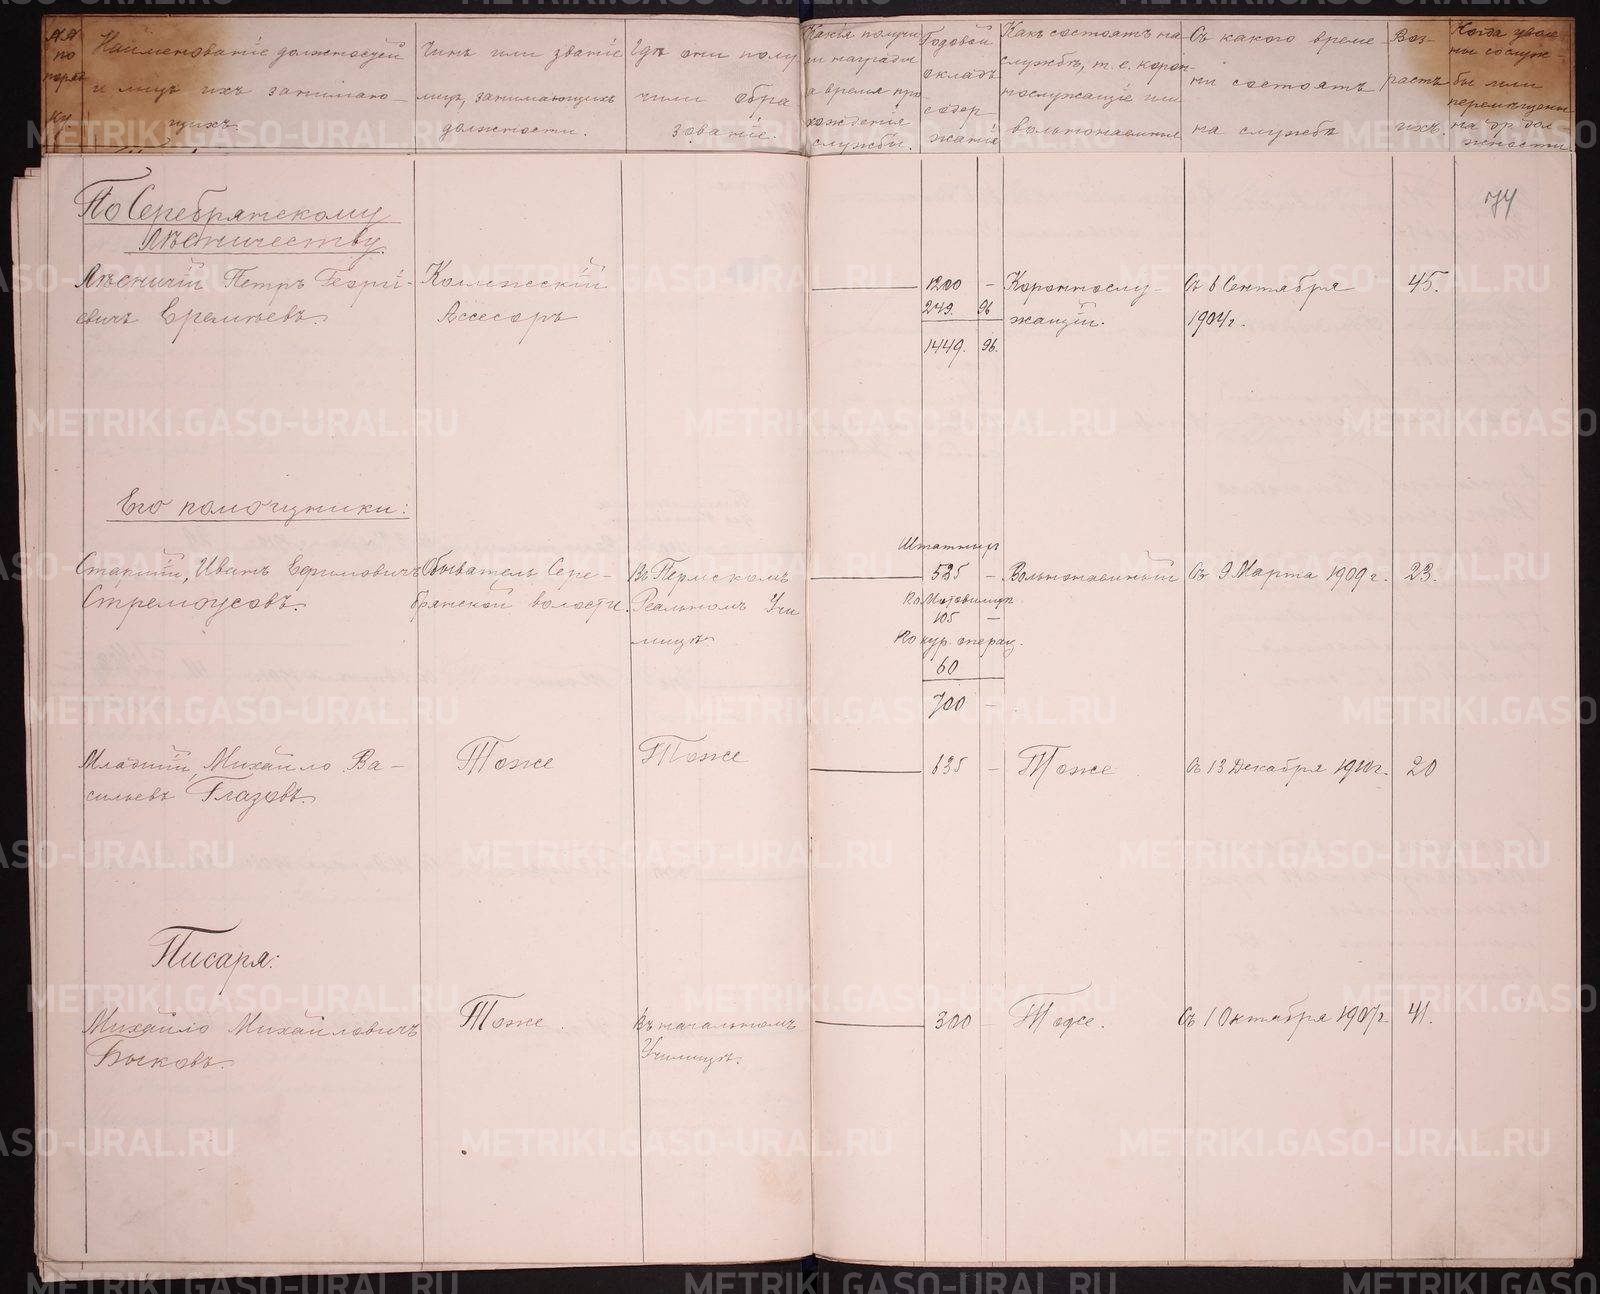 №№ по поряд ку
Наименованіе должностей и лицъ ихъ занимаю- щихъ.
Чинъ или званіе лицъ, занимающихъ должности.
Гдѣ они полу чили обра зованіе.
Какія получи ли награды а время про хожденія службы.
Годовой окладъ содер жанія
Какъ состоятъ на службѣ, т. е. корон- нослужащіе или вольнонаемные
Съ какого време- ни состоятъ на службѣ
Воз- растъ ихъ.
Когда уволе ны со служ- бы или перемѣщены на др. дол жности
74
По Серебрянскому
Лѣсничеству
Лѣсничій Петръ Георгі-
евичъ Еремѣевъ.
Коллежскій
Ассесоръ
1200 —
249. 96
1449. 96.
Коронослу-
жащій.
Съ 6 Сентября
1904 г.
45.
Его помощники:
Старшій, Иванъ Ефимовичъ
Стремоусовъ.
Обыватель Сере-
брянской волости.
Въ Пермскомъ
Реальномъ Учи
лищѣ
Штатныхъ
535 —
По Мотовилих.
105 —
По кур. операц.
60
700 —
Вольнонаемный
Съ 9 Марта 1909 г.
23.
Младшій, Михайло Ва-
сильевъ Глазовъ.
Тоже
Тоже
635 —
Тоже
Съ 13 Декабря 1910 г.
20
Писаря:
Михайло Михайловичъ
Быковъ.
Тоже.
Въ начальномъ
Училищѣ.
300 —
Тоже.
Съ 1 Октября 1907 г
41.
METRIKI.GASO-URAL.RU